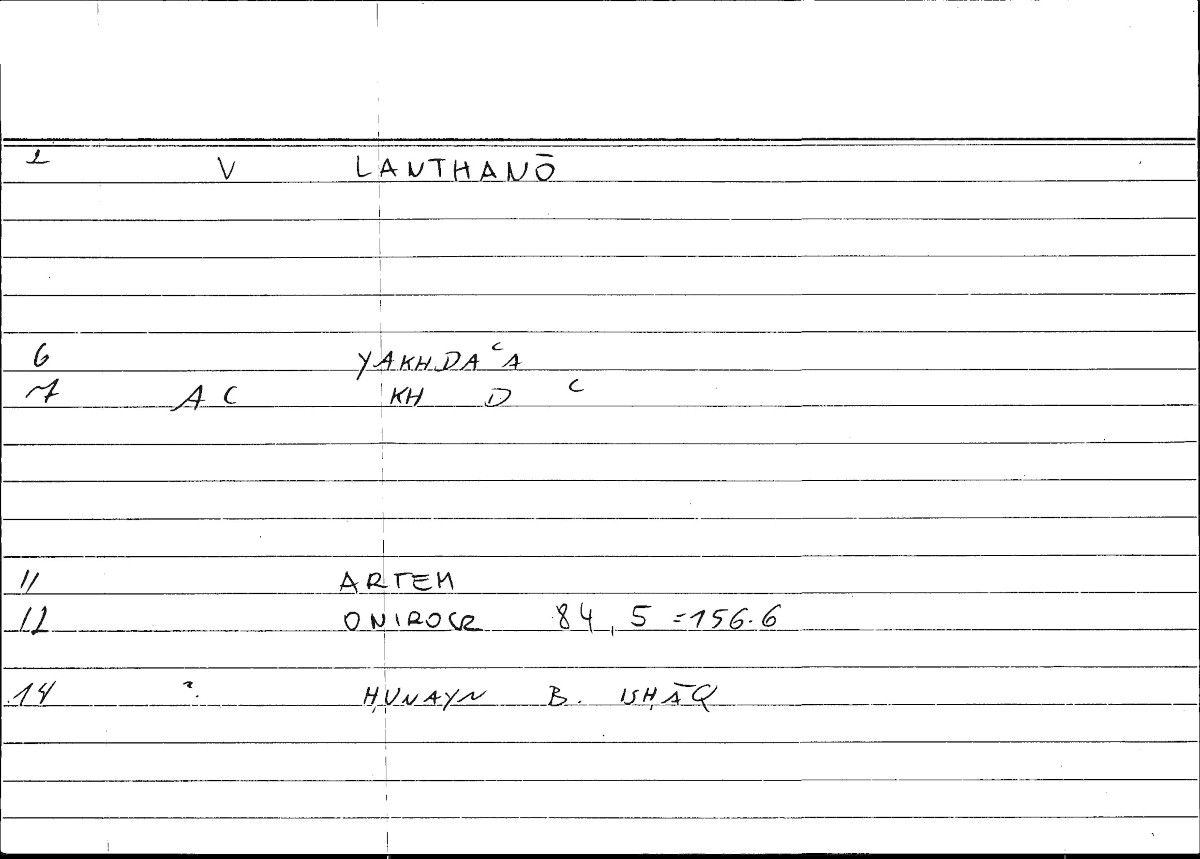 2 V LANTHANŌ
6 YAKHDAʿA
7 AC KH D ʿ
11 ARTEM
12 ONIROCR 84,5 =156.6
14 ?. ḤUNAYN B. ISḤĀQ